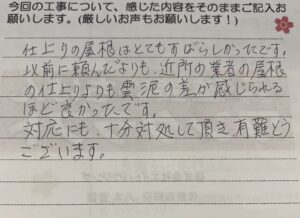 今回の工事について、感じた内容をそのままご記入お
願いします。(厳しいお声もお願いします！)
仕上りの屋根はとてもすばらしかったです。
以前に頼んだよりも、近所の業者の屋根
の仕上りよりも雲泥の差が感じられる
ほど良かったです。
対応にも、十分対処して頂き有難どう
ございます。